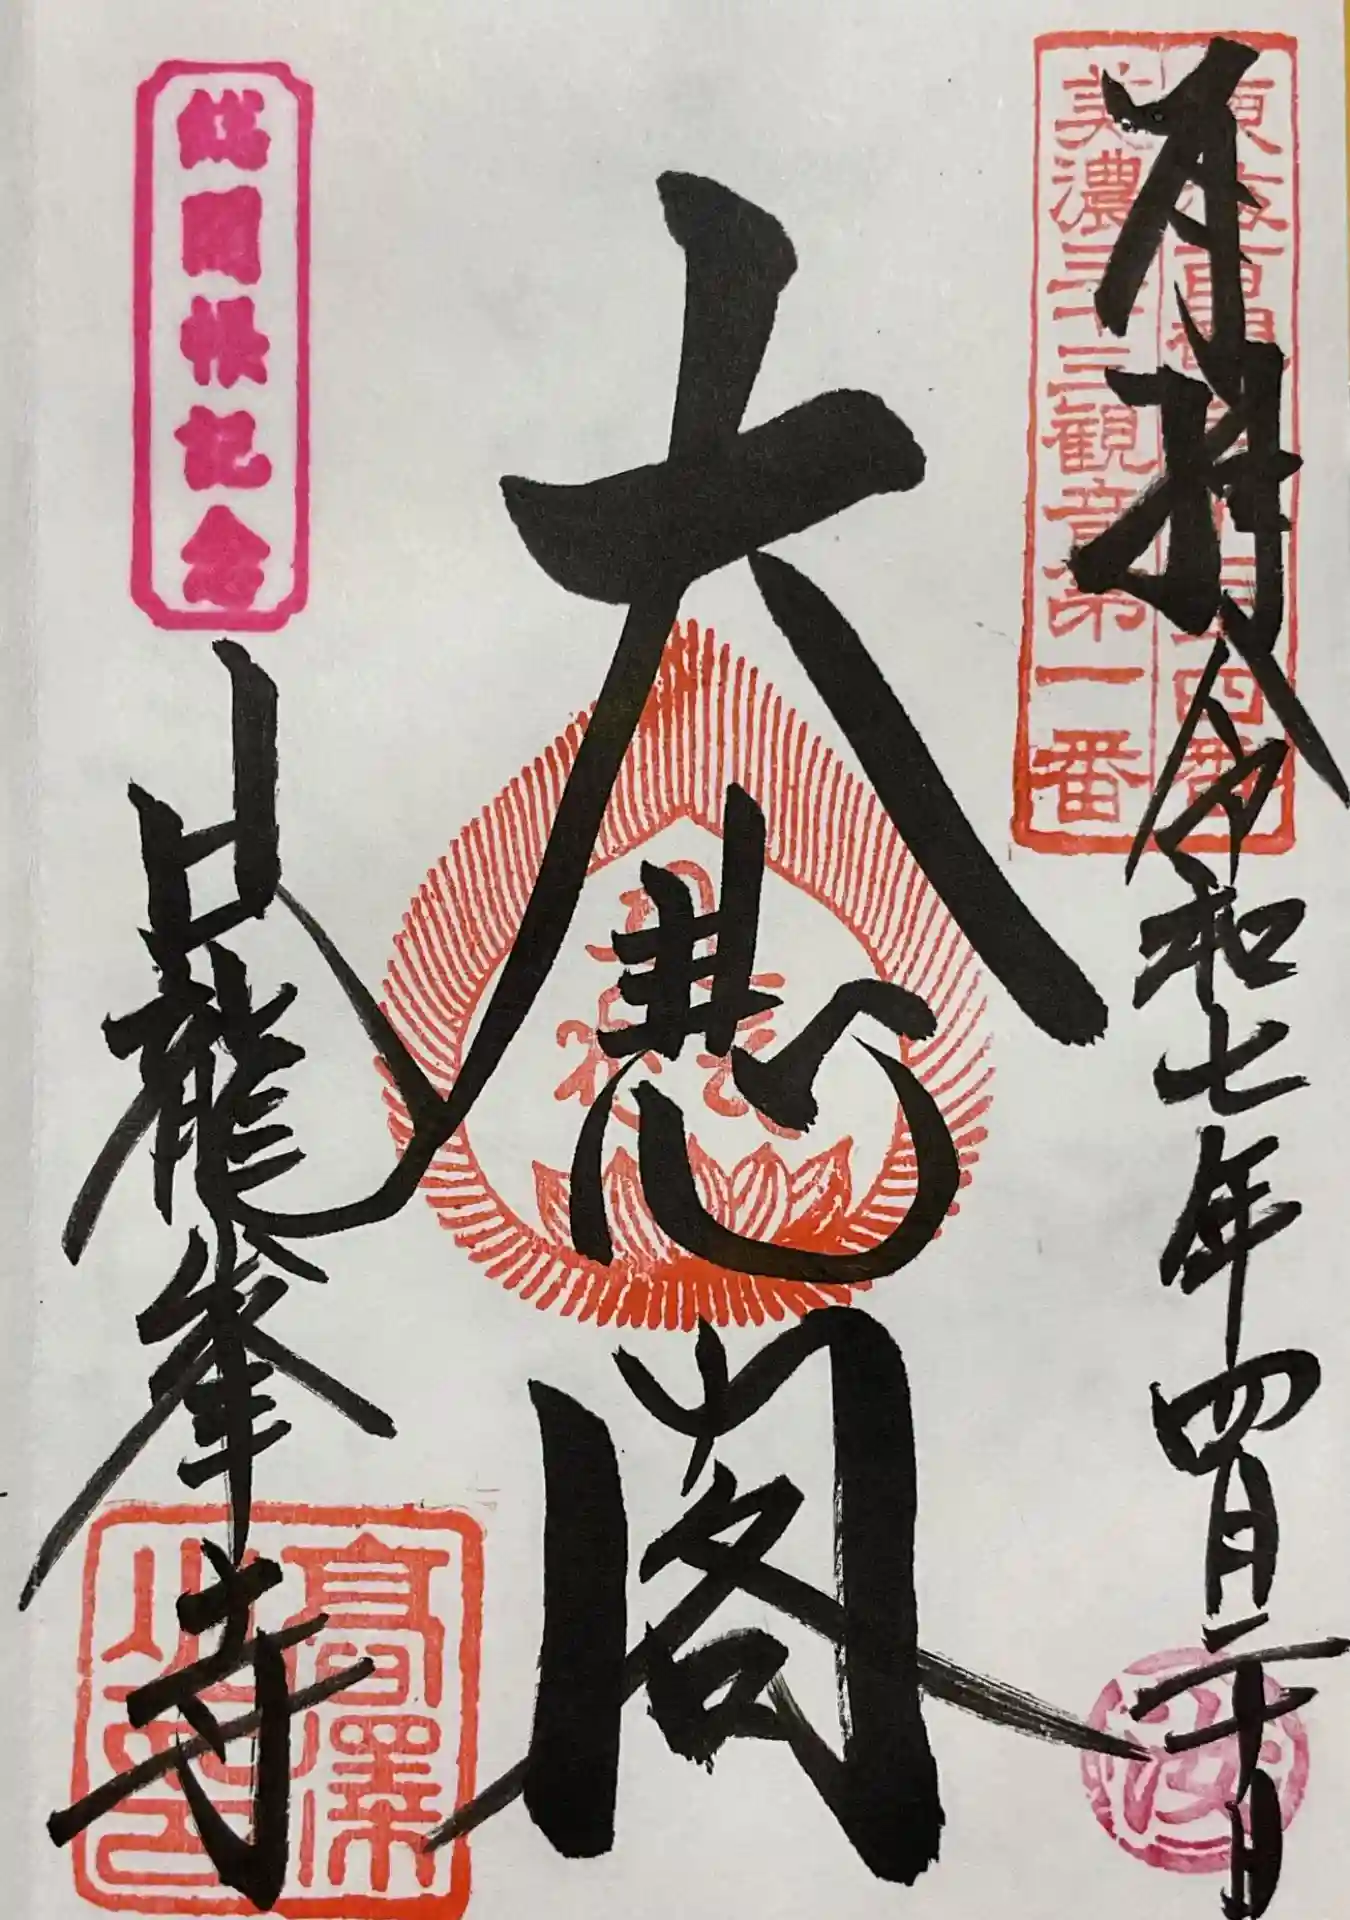 奉拝 令和七年四月二十日
東海百観音第三十四番
美濃三十三観音第一番
大悲閣
総開帳記念
日龍峯寺
高澤